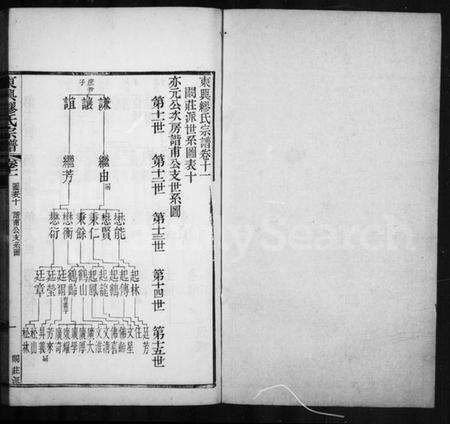 東興繆氏宗譜卷十一
閎莊派世系圖表十
亦元公次房諧甫公支世系圖
第十一世
第十二世
第十三世
第十四世
第十五世
謙
讓
誼
繼由
繼芳
懋能
懋賢
秉仁
秉餘
懋衡
懋衍
起林
起傳
起鶴
起龍
起鳳
鶴山
鶴齡
廷爾
廷瑩
廷章
廷芳
文星
佛齡
佛喜
文清
文淮
廣大
廣厚
廣學
芳來
松山
松林
東興繆氏宗譜
圖表十 諧甫公支系圖